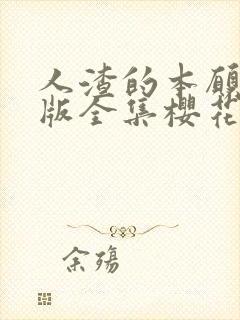 人渣的本愿
版全集樱花
余殇